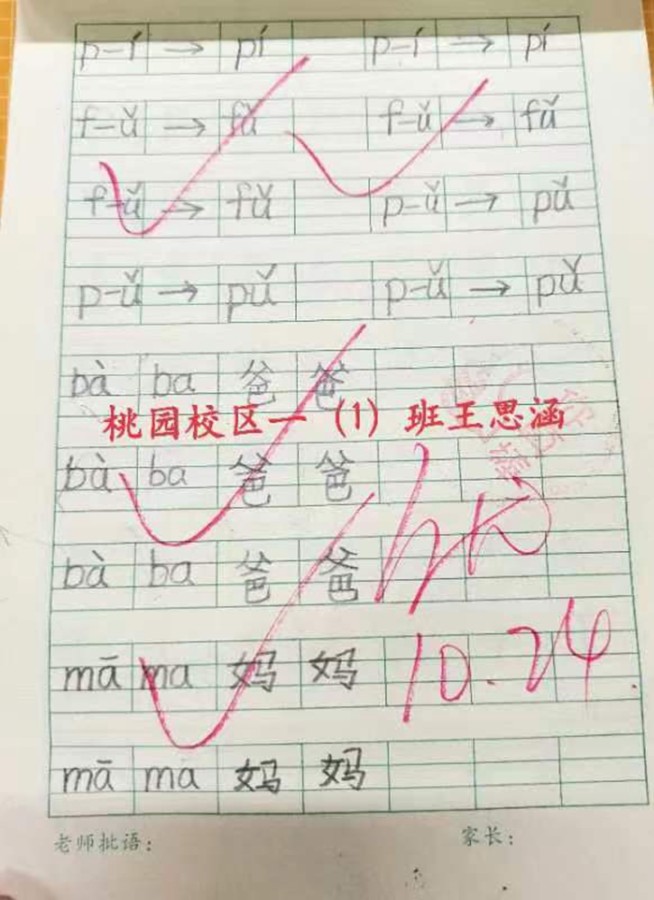 p-í → pí p-í → pí
f-ǔ → fǔ f-ǔ → fǔ
f-ǔ → fǔ p-ǔ → pǔ
p-ǔ → pǔ p-ǔ → pǔ
bà ba 爸 爸
桃园校区一(1)班王思涵
bà ba 爸 爸
bà ba 爸 爸
mā ma 妈 妈
10.24
mā ma 妈 妈
老师批语: 家长: